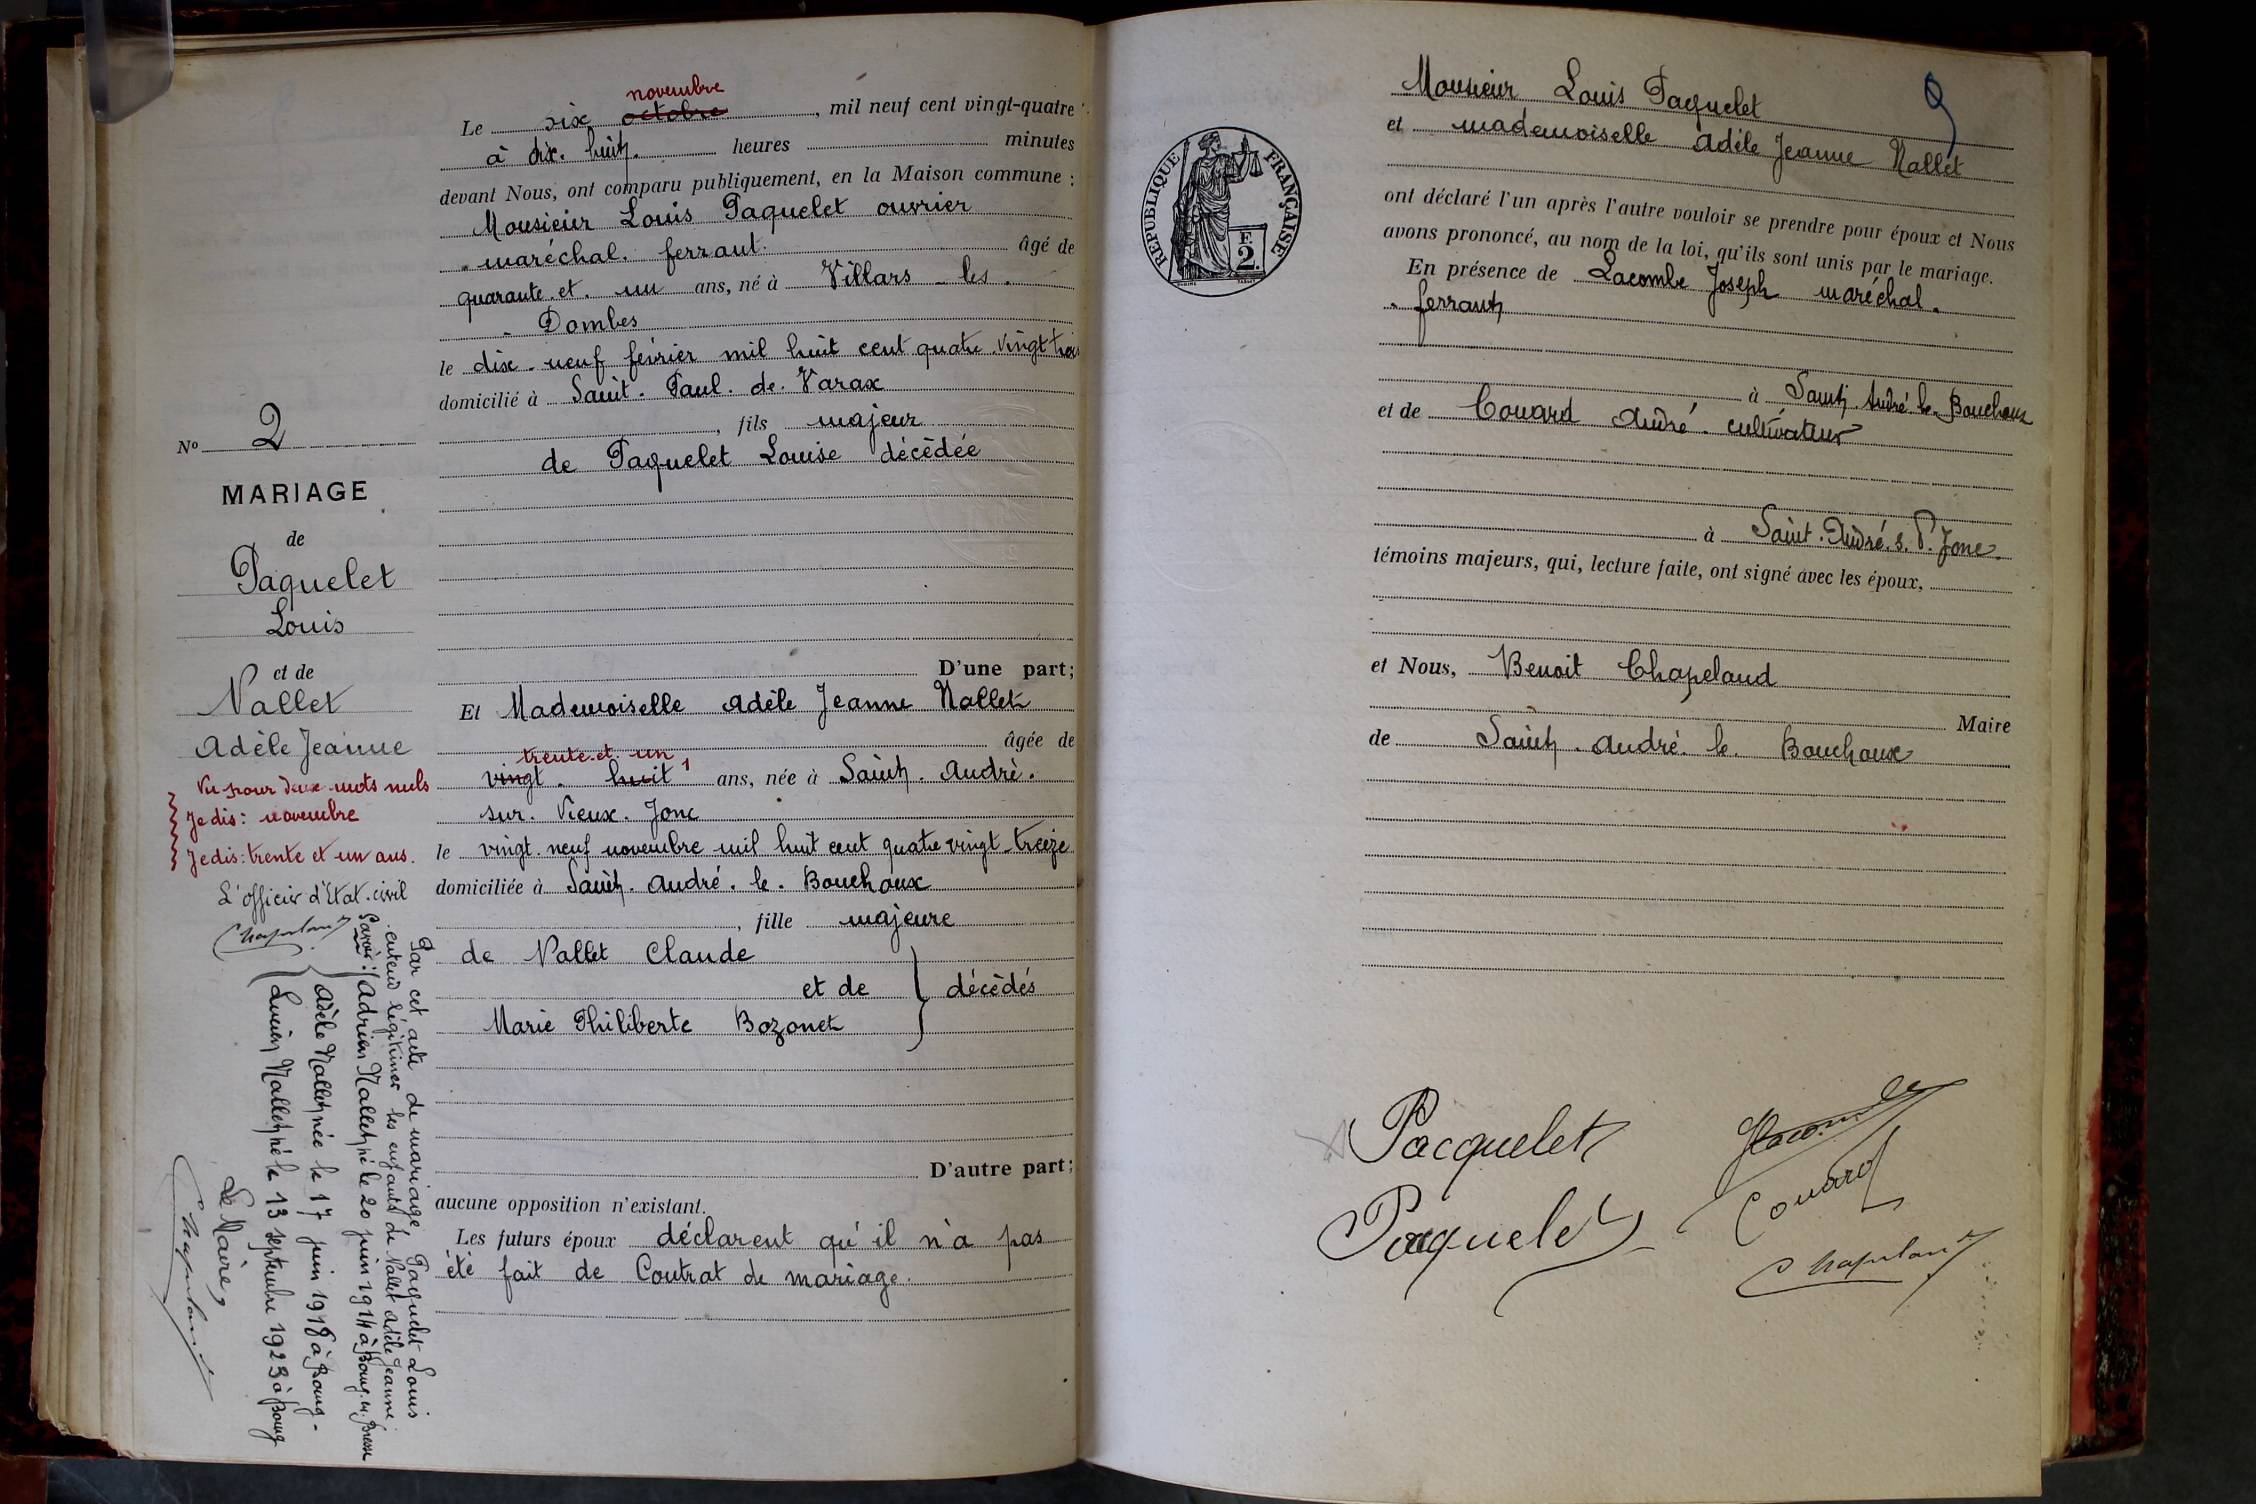 novembre
Le six octobre, mil neuf cent vingt-quatre
à dix-huit heures minutes
devant Nous, ont comparu publiquement, en la Maison commune :
Monsieur Louis Paquelet ouvrier
maréchal-ferrant. âgé de
quarante-et-un ans, né à Villars-les-
-Dombes
le dix-neuf février mil huit cent quatre-vingt trois
domicilié à Saint-Paul-de-Varax
, fils majeur
de Paquelet Louise décédée
D'une part;
Et Mademoiselle Adèle Jeanne Nallet
âgée de
trente-et-un
vingt-huit ans, née à Saint-André-
sur-Vieux-Jonc
le vingt-neuf novembre mil huit cent quatre vingt-treize
domiciliée à Saint-André-le-Bouchoux
, fille majeure
de Nallet Claude
et de décédés
Marie Philiberte Bozonet
D'autre part;
aucune opposition n'existant.
Les futurs époux déclarent qu'il n'a pas
été fait de Contrat de mariage.
No 2
MARIAGE
de
Paquelet
Louis
et de
Nallet
Adèle Jeanne
Vu pour deux mots nuls
Je dis: novembre
Je dis: trente et un ans.
L'officier d'Etat-civil
Chapeland
Par cet acte de mariage Paquelet Louis
entend légitimer les enfants de Nallet Adèle Jeanne
Savoir: Adrien Nallet né le 20 juin 1914 à Bourg-en-Bresse
Adèle Nallet née le 17 juin 1918 à Bourg-
Lucien Nallet né le 13 septembre 1923 à Bourg
Le Maire,
Chapeland
9
Monsieur Louis Paquelet
et mademoiselle Adèle Jeanne Nallet
ont déclaré l'un après l'autre vouloir se prendre pour époux et Nous
avons prononcé, au nom de la loi, qu'ils sont unis par le mariage.
En présence de Lacombe Joseph maréchal-
-ferrant
à Saint-André-le-Bouchoux
et de Couard André-cultivateur
à Saint-André-s.-V.-Jonc
témoins majeurs, qui, lecture faite, ont signé avec les époux,
et Nous, Benoit Chapeland
Maire
de Saint-André-le-Bouchoux
RÉPUBLIQUE FRANÇAISE
F.
2.
Pacquelet
Lacombe
Couard
Paquelet
Chapeland